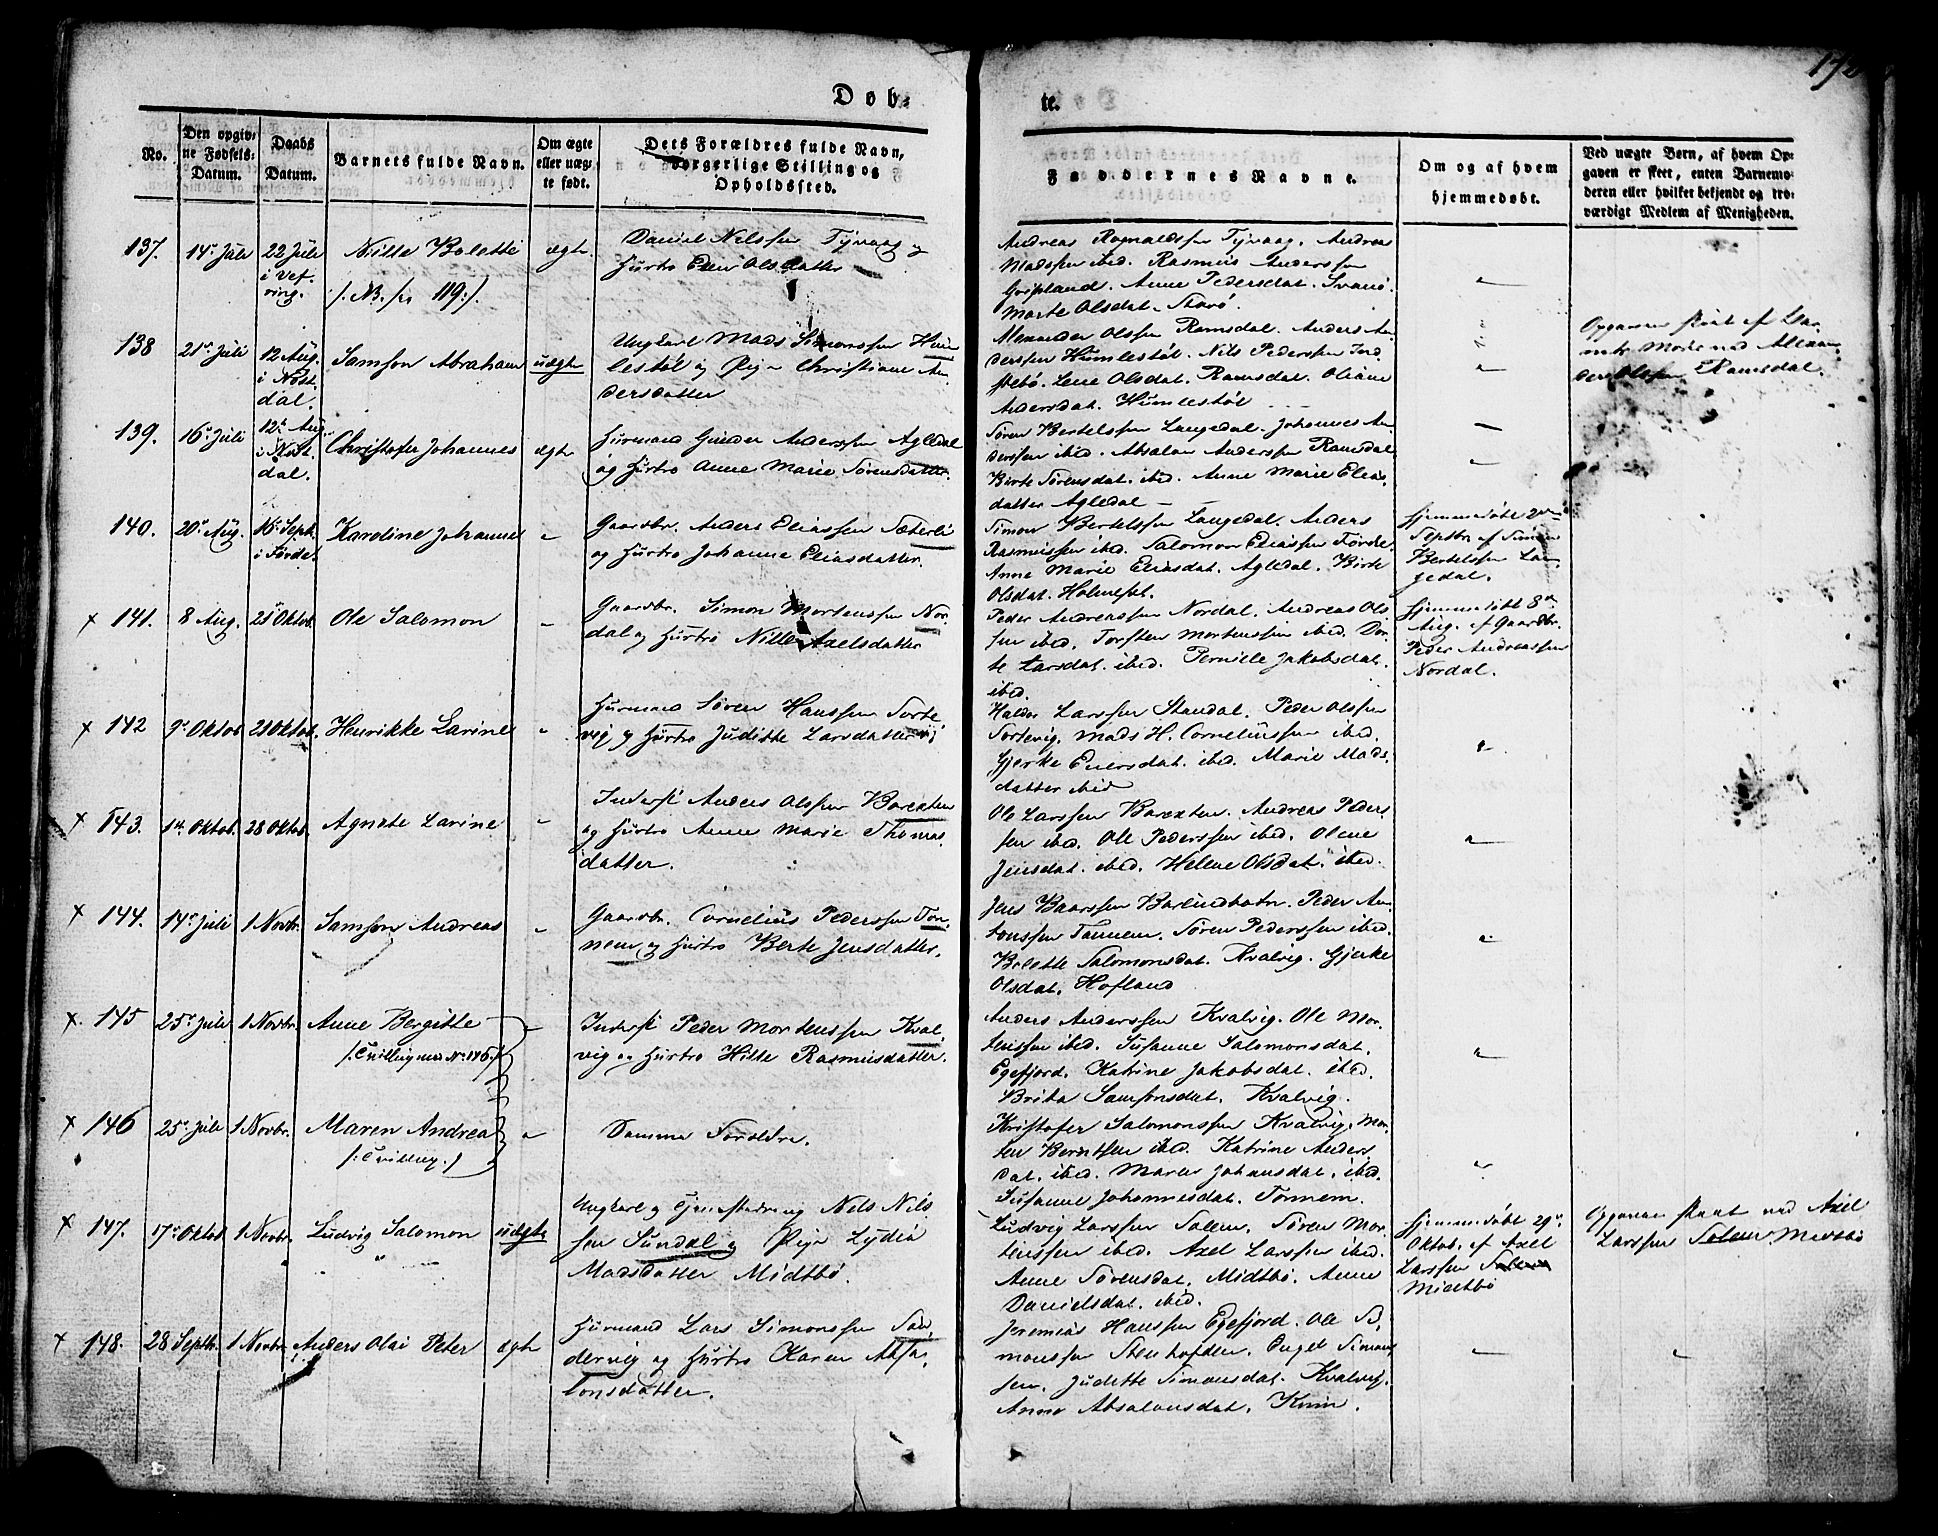 Døb-
te.
No.
Den opgiv-
ne Fødsels-
Datum.
Daabs
Datum.
Barnets fulde Navn.
Om ægte
eller uæg-
te født.
Dets Forældres fulde Navn,
borgerlige Stilling og
Opholdssted.
Faddernes Navne.
Om og af hvem
hjemmedøbt.
Ved uægte Børn, af hvem Op-
gaven er skeet, enten Barnemo-
deren eller hvilket bekjendt og tro-
værdigt Medlem af Menigheden.
137.
14de Juli
22 Juli
i Vef-
ring.
Nille Bolette
/: NB. fra 119 :/.
ægte
Daniel Nilssen Tyvaag og
Hustro Elen Olsdatter
Andreas Rognaldssen Tyvaag. Andreas
Madssen ibid. Rasmus Anderssen
Gripland. Anne Pedersdat. Svanø.
Marte Olsdat. Starø.
138
21de Juli
12 Aug.
i Nøst-
dal.
Samson Abraham
uægte
Ungkarl Mads Simonssen Hum-
lestøl og Pige Christiane An-
dersdatter
Alexander Olssen Ramsdal. Anders An-
derssen Humlestøl. Nils Pederssen Ind-
stebø. Lene Olsdat. Ramsdal. Oliane
Andersdat. Humlestøl
Opgaven skeet af Bar-
nets Moder ved Alexan-
der Olssen Ramsdal.
139.
16de Juli
12te Aug.
i Nøst-
dal.
Christofer Johannes
ægte
Huusmand Gunder Anderssen Agledal
og Hustro Anne Marie Sørensdatter.
Søren Bertelssen Langedal. Johannes An-
derssen ibid. Absalon Anderssen Ramsdal
Birte Sørensdat. ibid. Anne Marie Elias-
datter Agledal —
140.
20de Aug.
16 Septb.
i Førde.
Karoline Johanne
Gaardbr. Anders Eliassen Sæterli
og Hustro Johanne Eliasdatter.
Simon Bertelssen Langedal. Anders
Rasmussen ibid. Salomon Eliassen Førde.
Anne Marie Eliasdat. Agledal. Birte
Olsdat. Holmeset.
Hjemmedøbt 2den
Septbr. af Simon
Bertelssen Lan-
gedal.
x 141.
8 Aug.
21 Oktob.
Ole Salomon
Gaardbr. Simon Mortenssen Nor-
dal og Hustro Nille Axelsdatter
Peder Andreassen Nordal. Andreas Ols-
sen ibid. Torsten Mortenssen ibid. Dor-
te Larsdat. ibid. Pernille Jakobsdat.
ibid.
Hjemmedøbt 8de
Aug. af Gaardbr.
Peder Andreassen
Nordal.
x 142
9de Oktob
21 Oktob.
Henrikke Larine
Huusmand Søren Hanssen Torte-
vig og Hustro Juditte Larsdatter
Haldor Larssen Standal. Peder Olssen
Tortevig. Mads H. Corneliussen ibid.
Gjerke Einersdat. ibid. Marie Mads-
datter ibid
x 143.
14 Oktob.
28 Oktob.
Agnete Larine
Inderst Anders Olssen Barexten
og Hustro Anne Marie Thomas-
datter.
Ole Larssen Barexten. Andreas Peders-
sen ibid. Ole Pederssen ibid. Olene
Jensdat. ibid. Helene Olsdat. ibid.
x 144.
14de Juli
1 Novbr.
Samson Andreas
Gaardbr. Cornelius Pederssen Ton-
nem og Hustro Berte Jensdatter.
Jens Baarssen Barlindbotn. Peder An-
tonssen Tannem. Søren Pederssen ibid.
Bolette Salomonsdat. Kvalvig. Gjerke
Olsdat. Hofland
x. 145
25de Juli
1 Novbr.
Anne Bergitte
/: Tvilling med No 146 :/
Inderst Peder Mortenssen Kval-
vig og Hustro Hilte Rasmusdatter.
Anders Anderssen Kvalvig. Ole Mor-
tenssen ibid. Susanne Salomonsdat.
Egefjord. Katrine Jakobsdat. ibid.
Brita Samsonsdat. Kvalvig.
x 146
25de Juli
1 Novbr.
Maren Andrea
/: Tvilling :/
Samme Forældre.
Kristofer Salomonssen Kvalvig. Mor-
ten Berntsen ibid. Katrine Anders-
dat. ibid. Maren Johansdat. ibid.
Susanne Johannesdat. Tonnem.
x 147.
17de Oktob
1 Novbr.
Ludvig Salomon
uægte
Ungkarl og Tjenestedreng Nils Nils-
sen Sundal og Pige Lydia
Madsdatter Midtbø.
Ludvig Larssen Solem. Søren Mor-
tenssen ibid. Axel Larssen ibid.
Anne Sørensdat. Midtbø. Anne
Danielsdat. ibid.
Hjemmedøbt 29de
Oktob. af Axel
Larssen Solem
Midtbø
Opgaven skeet ved Axel
Larssen Solem Midtbø
x 148.
28 Septb.
1 Novbr.
Anders Olai Peter
ægte
Huusmand Lars Simonssen San-
dervig og Hustro Karen Absa-
lonsdatter.
Jeremias Hanssen Egefjord. Ole Si-
monssen Stenhofden. Engel Simons-
sen. Juditte Simonsdat. Kvalvig.
Anne Absalonsdat. Krim.